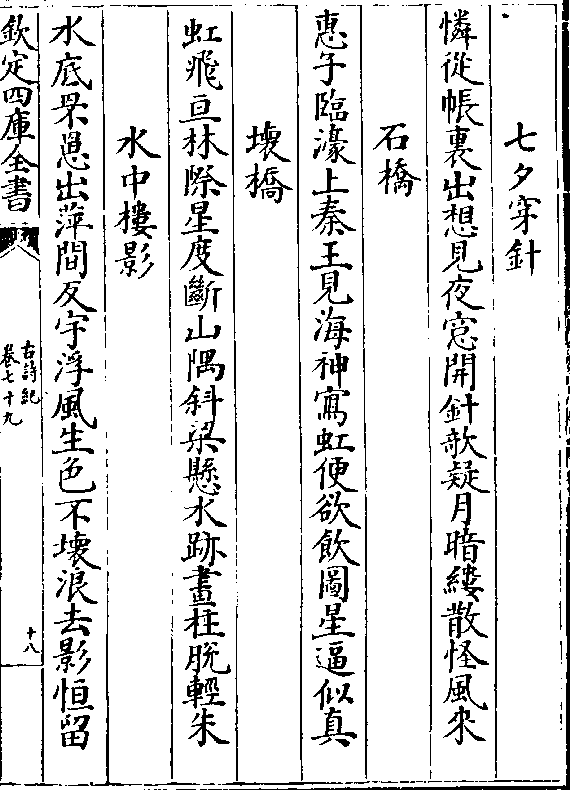 七夕穿針
憐從帳裏出想見夜窓開針欹疑月暗縷散怪風来
石橋
惠子臨濠上秦王見海神寫虹便欲飲圖星逼似真
壊橋
虹飛亘林際星度斷山隅斜梁懸水跡畫柱脫輕朱
水中樓影
水底罘罳出萍間反宇浮風生色不壊浪去影恒留
欽定四庫全書
古詩紀
卷七十九
十八